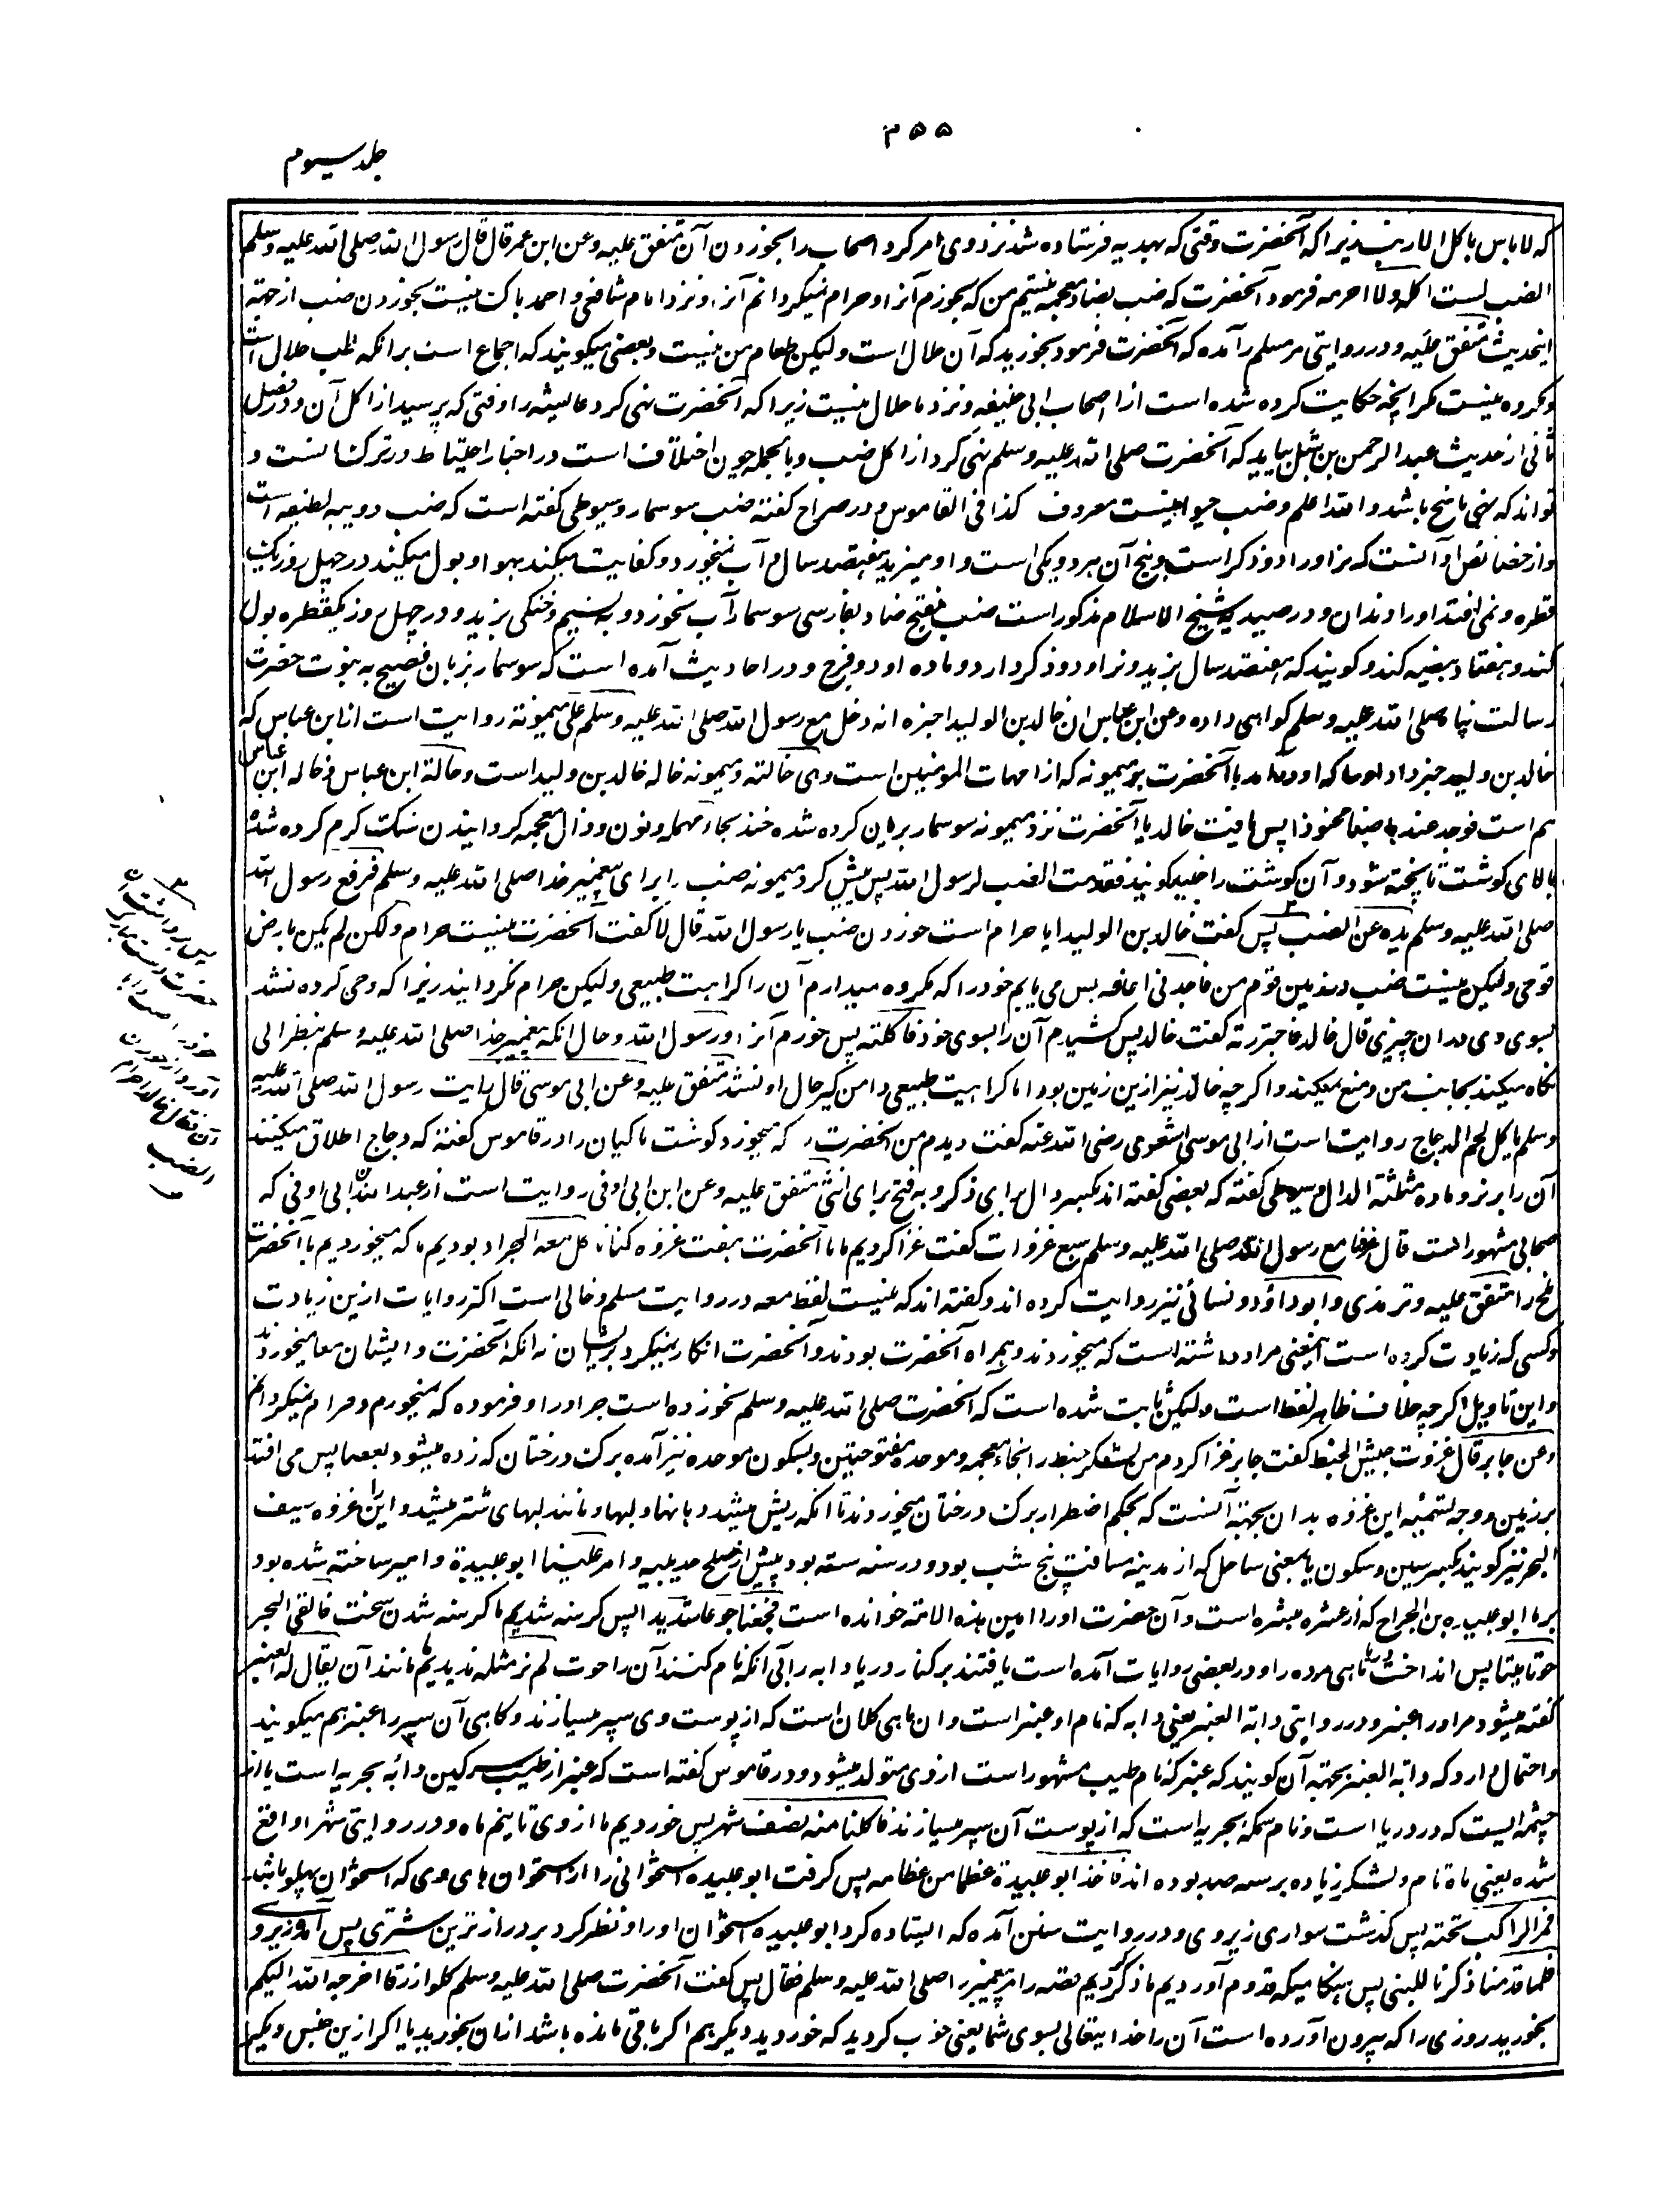 ۳۵۵
جلد سیوم
که لا باس باکل الارنب زیرا که آنحضرت وقتی که بهدیه فرستاده شد نزد وی امر کرد اصحاب را بخوردن آن متفق علیه وعن ابن عمر قال قال رسول الله صلی الله علیه وسلم
الضب لست اکله ولا احرمه فرمود آنحضرت که ضب بضاد معجمه نیستم من که بخورم آنرا و حرام نمیگردانم آنرا و نزد امام شافعی و احمد باک نیست بخوردن ضب از جهة
اینحدیث متفق علیه و در روایتی مر مسلم را آمده که آنحضرت فرمود بخورید که آن حلال است ولیکن طعام من نیست و بعضی میگویند که اجماع است برانکه ضب حلال است
و مکروه نیست مگر آنچه حکایت کرده شده است از اصحاب ابی حنیفه و نزد ما حلال نیست زیرا که آنحضرت نهی کرد عائشه را وقتی که پرسید از اکل آن و در فصل
ثانی از حدیث عبد الرحمن بن شبل بیاید که آنحضرت صلی الله علیه وسلم نهی کرد از اکل ضب و بالجمله چون اختلاف است در اخبار احتیاط در ترک آنست و
تواند که نهی ناسخ باشد والله اعلم وضب حیوانیست معروف کذا فی القاموس و در صراح گفته ضب سوسمار وسیوطی گفته است که ضب دویبه لطیفه است
و از خصائص او آنست که مر او را دو ذکر است و بیخ آن هر دو یکی است و او میزید هفتصد سال و آب نمیخورد و کفایت میکند بهوا و بول میکند در چهل روز یک
قطره و نمی افتد او را دندان و در صیدیه شیخ الاسلام مذکور است ضب بفتح ضاد بفارسی سوسمار آب نخورد و به نسیم و خنکی بزید و در چهل روز یکقطره بول
کند و هفتاد بیضه کند و گویند که هفتصد سال بزید و نر او دو ذکر دارد و ماده او دو فرج و در احادیث آمده است که سوسمار بزبان فصیح به نبوت حضرت
رسالت پناه صلی الله علیه وسلم گواهی داده وعن ابن عباس ان خالد بن الولید اخبره انه دخل مع رسول الله صلی الله علیه وسلم علی میمونة روایت است از ابن عباس که
خالد بن ولید خبر داد او را که او درآمد با آنحضرت بر میمونه که از امهات المومنین است وهی خالته و میمونه خاله خالد بن ولید است وخالة ابن عباس و خاله ابن عباس
هم است فوجد عندها ضبا محنوذا پس یافت خالد یا آنحضرت نزد میمونه سوسمار بریان کرده شده حنذ بحاء مهمله و نون و ذال معجمه گردانیدن سنگ گرم کرده شده
بالای گوشت تا پخته شود و آن گوشت را حنیذ گویند فقدمت الضب لرسول الله پس پیش کرد میمونه ضب را برای پیغمبر خدا صلی الله علیه وسلم فرفع رسول الله
صلی الله علیه وسلم یده عن الضب پس گفت خالد بن الولید ایا حرام است خوردن ضب یا رسول الله قال لا گفت آنحضرت نیست حرام ولکن لم یکن بارض
قومی ولیکن نیست ضب در زمین قوم من فاجدنی اعافه پس می یابم خود را که مکروه میدارم آن را کراهت طبیعی ولیکن حرام نگردانید زیرا که وحی کرده نشد
بسوی وی دران چیزی قال خالد فاجتررته گفت خالد پس کشیدم آن را بسوی خود فاکلته پس خوردم آنرا ورسول الله و حال آنکه پیغمبر خدا صلی الله علیه وسلم ینظر الی
نگاه میکند بجانب من و منع نمیکند و اگر چه خالد نیز ازین زمین بود اما کراهیت طبیعی دامن گیر حال او نشد متفق علیه وعن ابی موسی قال رایت رسول الله صلی الله علیه
وسلم یاکل لحم الدجاج روایت است از ابی موسی اشعری رضی الله عنه گفت دیدم من آنحضرت را که میخورد گوشت ماکیان را در قاموس گفته که دجاج اطلاق میکنند
آن را بر نر و ماده مثلثة الدال و سیوطی گفته که بعضی گفته اند بکسر دال برای ذکر و به فتح برای انثی متفق علیه وعن ابن ابی اوفی روایت است از عبد الله بن ابی اوفی که
صحابی مشهور است قال غزونا مع رسول الله صلی الله علیه وسلم سبع غزوات گفت غزا کردیم ما با آنحضرت هفت غزوه کنا ناکل معه الجراد بودیم ما که میخوردیم با آنحضرت
ملخ را متفق علیه و ترمذی و ابو داؤد و نسائی نیز روایت کرده اند و گفته اند که نیست لفظ معه در روایت مسلم و خالی است اکثر روایات ازین زیادت
و کسی که زیادت کرده است اینمعنی مراد داشته است که میخوردند و همراه آنحضرت بودند و آنحضرت انکار نمیکرد بر ایشان نه انکه آنحضرت و ایشان معا میخوردند
و این تاویل اگر چه خلاف ظاهر لفظ است ولیکن ثابت شده است که آنحضرت صلی الله علیه وسلم نخورده است جراد را و فرموده که نمیخورم و حرام نمیگردانم
وعن جابر قال غزوت جیش الخبط گفت جابر غزا کردم من لشکر خبط را بخاء معجمه و موحده مفتوحتین و بسکون موحده نیز آمده برگ درختان که زده میشود بعصا پس می افتد
بر زمین و وجه تسمیه این غزوه بدان بجهة آنست که بحکم اضطرار برگ درختان میخوردند تا انکه ریش میشد دهانها و لبها و مانند لبهای شتر میشد و این را غزوه سیف
البحر نیز گویند بکسر سین و سکون یا بمعنی ساحل که از مدینه مسافت پنج شب بود و در سنه سته بود پیش از صلح حدیبیه وامر علینا ابو عبیدة و امیر ساخته شده بود
بر ما ابو عبیده بن الجراح که از عشره مبشره است و آن حضرت او را امین هذه الامة خوانده است فجعنا جوعا شدیدا پس گرسنه شدیم ما گرسنه شدن سخت فالقی البحر
حوتا میتا پس انداخت دریا ماهی مرده را و در بعضی روایات آمده است یافتند بر کنار دریا دابه را بی آنکه نام کنند آن را حوت لم نر مثله ندیدیم ما مانند آن یقال له العنبر
گفته میشود مر او را عنبر و در روایتی دابة العنبر یعنی دابه که نام او عنبر است و ان ماهی کلان است که از پوست وی سپر میسازند و گاهی آن سپر را عنبر هم میگویند
و احتمال دارد که دابة العنبر بجهة آن گویند که عنبر که نام طیب مشهور است از وی متولد میشود و در قاموس گفته است که عنبر از طیب سرگین دابه بحریه است یا از
چشمه ایست که در دریا است و نام سمکه بحریه است که از پوست آن سپر میسازند فاکلنا منه نصف شهر پس خوردیم ما از وی تا نیم ماه و در روایتی شهرا واقع
شده یعنی ماه تام و لشکر زیاده بر سه صد بوده اند فاخذ ابو عبیدة عظما من عظامه پس گرفت ابو عبیده استخوانی را از استخوان های وی که استخوان پهلو باشد
فمر الراکب تحته پس گذشت سواری زیر وی و در روایت سنن آمده که ایستاده کرد ابو عبیده استخوان او را و نظر کرد بر دراز ترین شتری پس آمد زیر و
فلما قدمنا ذکرنا للنبی پس هنگامیکه قدوم آوردیم ما ذکر کردیم قصه را مر پیغمبر را صلی الله علیه وسلم فقال پس گفت آنحضرت صلی الله علیه وسلم کلوا رزقا اخرجه الله الیکم
بخورید روزی را که بیرون آورده است آن را خدایتعالی بسوی شما یعنی خوب کردید که خوردید و دیگر هم اگر باقی مانده باشد ازان بخورید یا اگر ازین جنس دیگر
پس برداشت
حضرت دست مبارک
خود را
فقال خالد احرام
الضب